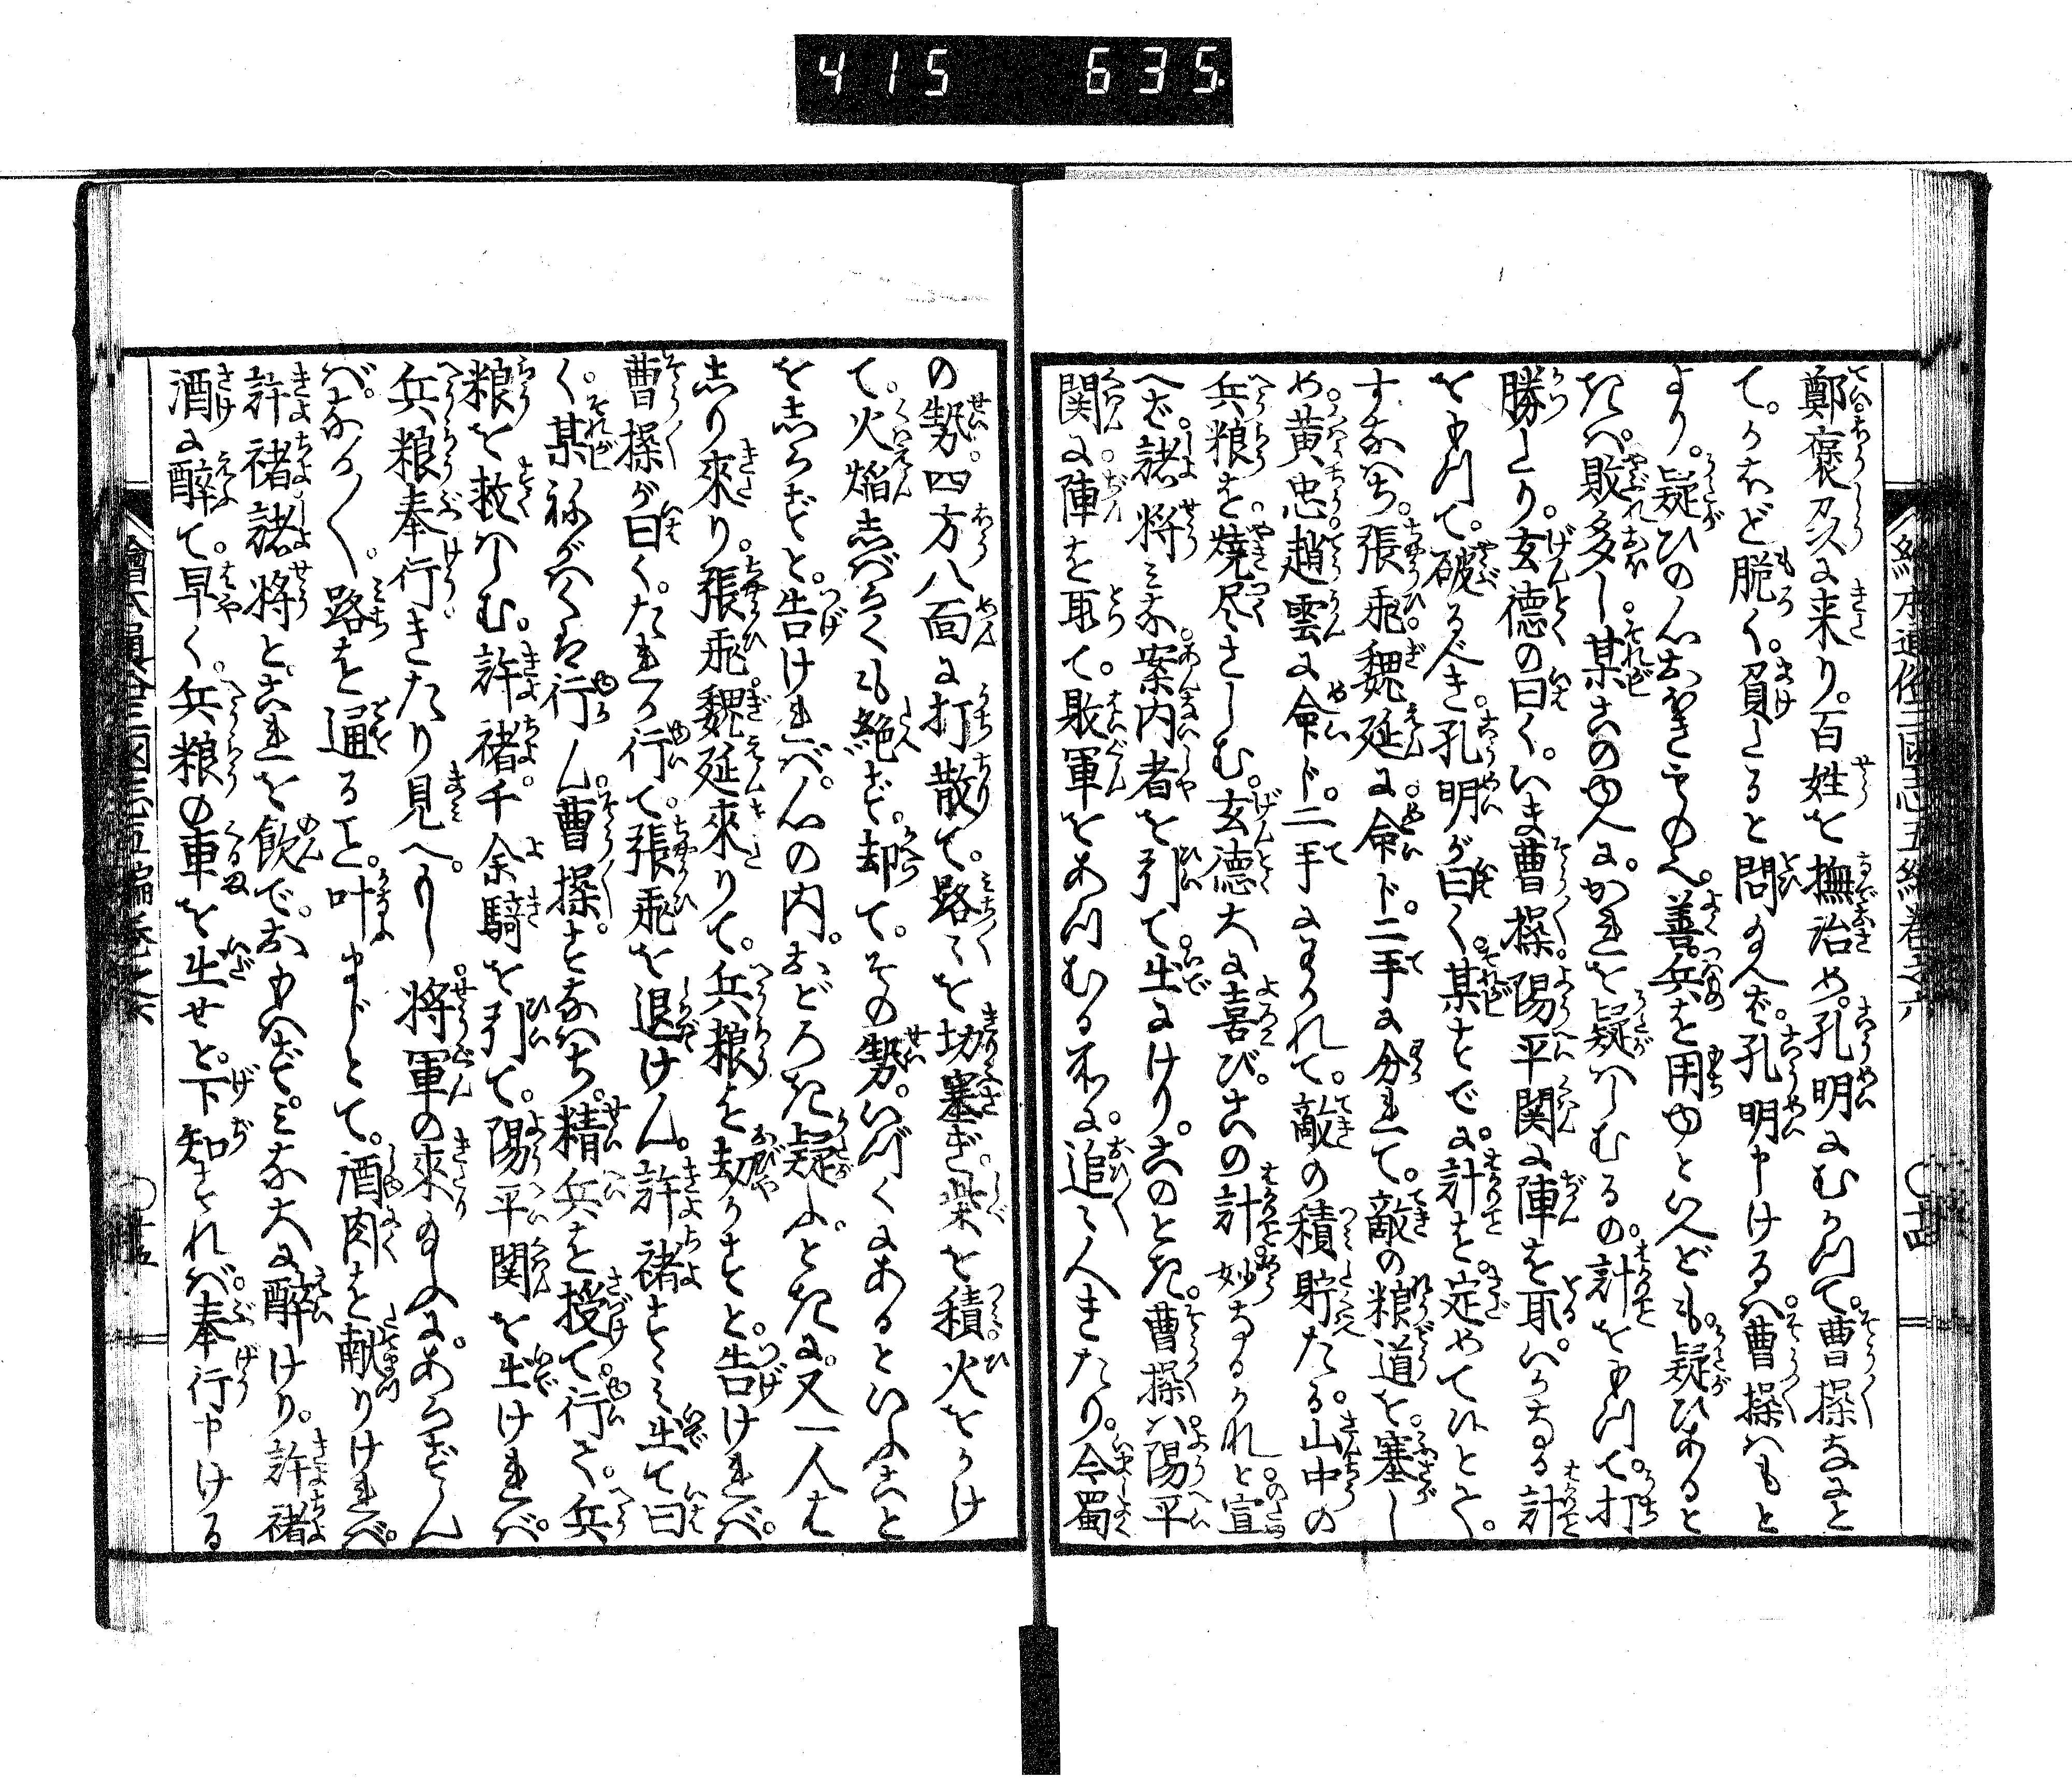 415 635.
繪本通俗三國志五編卷之六 〇廿四
鄭褒乃に来り。百姓を撫治め。孔明にむかつて。曹操なにと
て。かほど脱く。負たると問給へば。孔明申けるは。曹操はもと
より。疑ひの心おほきものゆへ。善兵を用ゆといへども。疑ひあると
きは。敗多し。某このゆへに。かれを疑はしむるの。計をもつて。打
勝たり。玄徳の曰く。いま曹操。陽平関に陣を取。いかなる計
をもつて。破るべき。孔明が曰く。某すでに。計を。定めて候とて。
すなはち。張飛。魏延に。命ド。二手に分れて。敵の粮道を。塞し
め。黄忠。趙雲に命ド。二手にわかれて。敵の積貯たる。山中の
兵粮を。焼尽さしむ。玄徳大に喜び。この計。妙なるかなと宣
へば。諸将みな。案内者を引て。出にけり。このとき。曹操は。陽平
関に。陣を取て。敗軍をあつむる所に。追々人きたり。今蜀
の勢。四方八面に打散て。路々を切塞ぎ。柴を積。火をかけ
て。火焔しばらくも絶ず。却て。その勢。いづくにあるといふこと
をしらずと。告ければ。心の内。おどろき疑ふ。ときに。又一人は
しり來り。張飛。魏延來りて。兵粮を劫かすと。告ければ。
曹操が曰く。たれか行て。張飛を退けん。許褚すゝみ出て曰
く。某ねがはくは行ん。曹操すなはち。精兵を授て。行て。兵
粮を救はしむ。許褚。千余騎を引て。陽平関を出ければ。
兵粮奉行きたり見へ。もし。将軍の來給ふに。あらずん
ば。なか〳〵。路を通ること。叶まじとて。酒肉を献りければ。
許褚諸将と。これを飲で。おもはず。みな大に醉けり。許褚
酒に醉て。早く。兵粮の車を出せと。下知すれば。奉行申ける
繪本通俗三國志五編卷之六 〇廿五